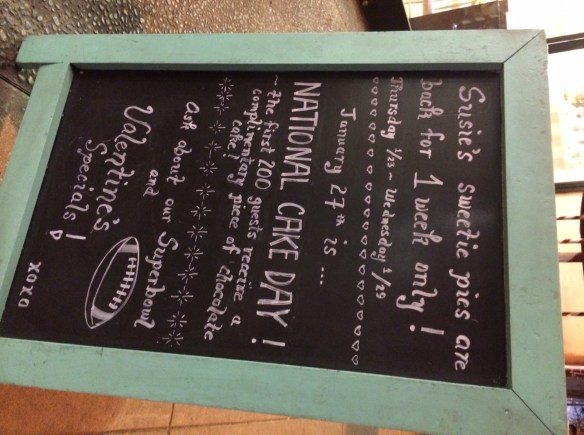 Susie's sweetie pies are
back for 1 week only!
Thursday 1/23 ~ Wednesday 1/29
January 27th is ...
NATIONAL CAKE DAY!
~ the first 200 guests receive a
complimentary piece of chocolate
cake!
Ask about our Superbowl
and
Valentine's
Specials!
XOXO